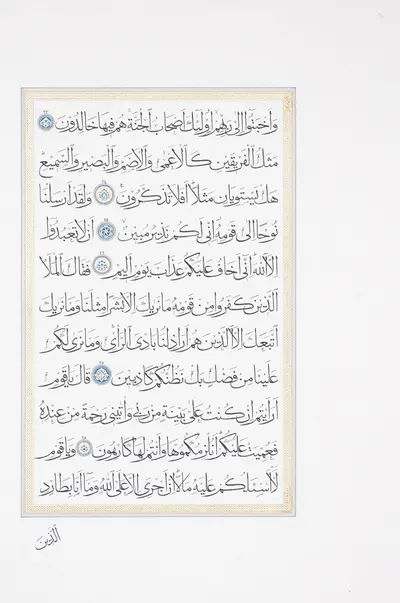 وَأَخْبَتُوا إِلَىٰ رَبِّهِمْ أُولَٰئِكَ أَصْحَابُ الْجَنَّةِ هُمْ فِيهَا خَالِدُونَ
مَثَلُ الْفَرِيقَيْنِ كَالْأَعْمَىٰ وَالْأَصَمِّ وَالْبَصِيرِ وَالسَّمِيعِ
هَلْ يَسْتَوِيَانِ مَثَلًا أَفَلَا تَذَكَّرُونَ وَلَقَدْ أَرْسَلْنَا
نُوحًا إِلَىٰ قَوْمِهِ إِنِّي لَكُمْ نَذِيرٌ مُبِينٌ أَنْ لَا تَعْبُدُوا
إِلَّا اللَّهَ إِنِّي أَخَافُ عَلَيْكُمْ عَذَابَ يَوْمٍ أَلِيمٍ فَقَالَ الْمَلَأُ
الَّذِينَ كَفَرُوا مِنْ قَوْمِهِ مَا نَرَاكَ إِلَّا بَشَرًا مِثْلَنَا وَمَا نَرَاكَ
اتَّبَعَكَ إِلَّا الَّذِينَ هُمْ أَرَاذِلُنَا بَادِيَ الرَّأْيِ وَمَا نَرَىٰ لَكُمْ
عَلَيْنَا مِنْ فَضْلٍ بَلْ نَظُنُّكُمْ كَاذِبِينَ قَالَ يَا قَوْمِ
أَرَأَيْتُمْ إِنْ كُنْتُ عَلَىٰ بَيِّنَةٍ مِنْ رَبِّي وَآتَانِي رَحْمَةً مِنْ عِنْدِهِ
فَعُمِّيَتْ عَلَيْكُمْ أَنُلْزِمُكُمُوهَا وَأَنْتُمْ لَهَا كَارِهُونَ وَيَا قَوْمِ
لَا أَسْأَلُكُمْ عَلَيْهِ مَالًا إِنْ أَجْرِيَ إِلَّا عَلَى اللَّهِ وَمَا أَنَا بِطَارِدِ
الَّذِينَ